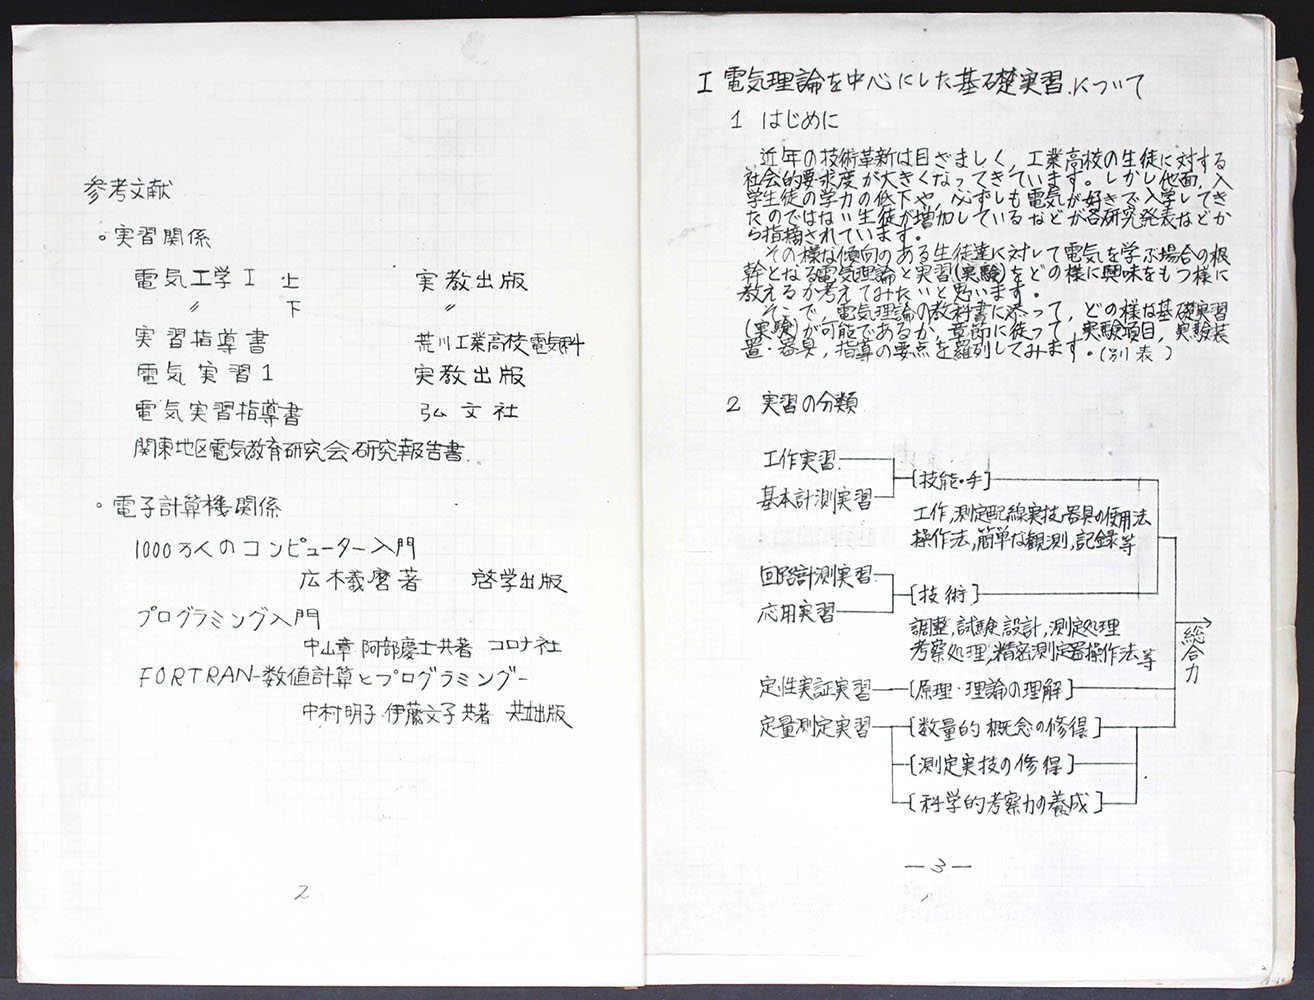 参考文献
。実習関係
電気工学Ⅰ 上 実教出版
〃 下 〃
実習指導書 荒川工業高校電気科
電気実習1 実教出版
電気実習指導書 弘文社
関東地区電気教育研究会研究報告書.
。電子計算機関係
1000万人のコンピューター入門
広木義磨著 啓学出版
プログラミング入門
中山章 阿部慶士共著 コロナ社
FORTRAN-数値計算とプログラミング-
中村明子.伊藤文子共著 共立出版
2
Ⅰ 電気理論を中心にした基礎実習.について
1 はじめに
近年の技術革新は目ざましく,工業高校の生徒に対する
社会的要求度が大きくなってきています。しかし他面,入
学生徒の学力の低下や,必ずしも電気が好きで入学してき
たのではない生徒が増加しているなどが各研究発表などか
ら指摘されています。
その様な傾向のある生徒達に対して電気を学ぶ場合の根
幹となる電気理論と実習(実験)をどの様に興味をもつ様に
教えるか考えてみたいと思います。
そこで,電気理論の教科書に添って,どの様な基礎実習
(実験)が可能であるか,章節に従って,実験項目,実験装
置・器具,指導の要点を羅列してみます。(別表)
2 実習の分類
工作実習.
基本計測実習
[技能・手]
工作,測定配線実技,器具の使用法
操作法,簡単な観測,記録等
回路計測実習
応用実習
[技術]
調整,試験,設計,測定処理
考察処理,精密測定器操作法等
総合力
定性実証実習 [原理・理論の理解]
定量測定実習 [数量的概念の修得]
[測定実技の修得]
[科学的考察力の養成]
—3—